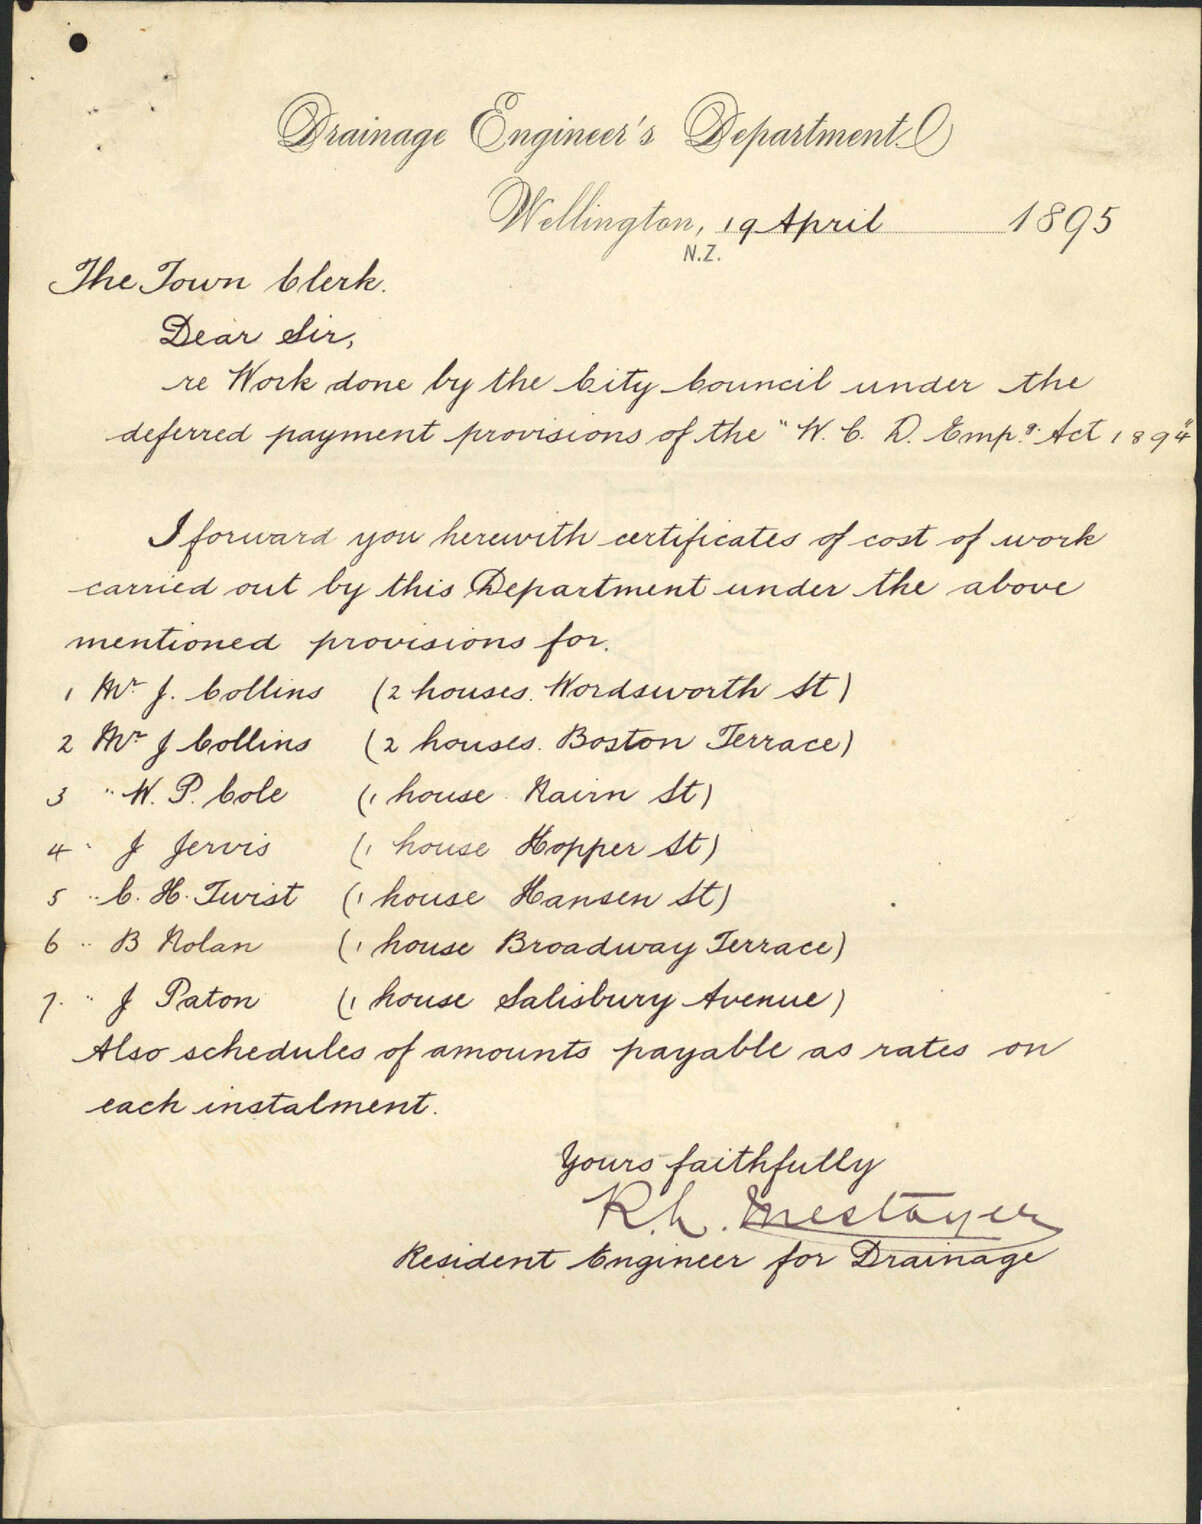 Drainage Engineer's Department.
Wellington, 19 April 1895
N.Z.
The Town Clerk.
Dear Sir,
re Work done by the City Council under the
deferred payment provisions of the "W. C. D. Empg. Act 1894"
I forward you herewith certificates of cost of work
carried out by this Department under the above
mentioned provisions for.
1 Mr J. Collins (2 houses. Wordsworth St)
2 Mr J Collins (2 houses. Boston Terrace)
3 " W. P. Cole (1 house Nairn St)
4 " J Jervis (1 house Hopper St)
5 " C. H. Twist (1 house Hansen St)
6 " B Nolan (1 house Broadway Terrace)
7. " J Paton (1 house Salisbury Avenue)
Also schedules of amounts payable as rates on
each instalment.
Yours faithfully
R. L. Mestayer
Resident Engineer for Drainage